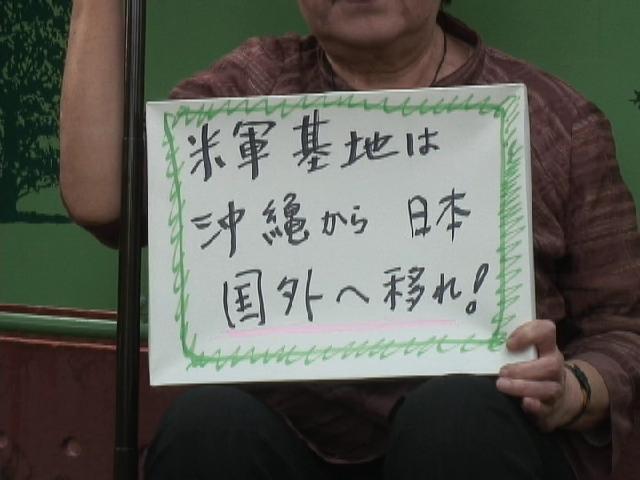 米軍基地は
沖縄から 日本
国外へ移れ!